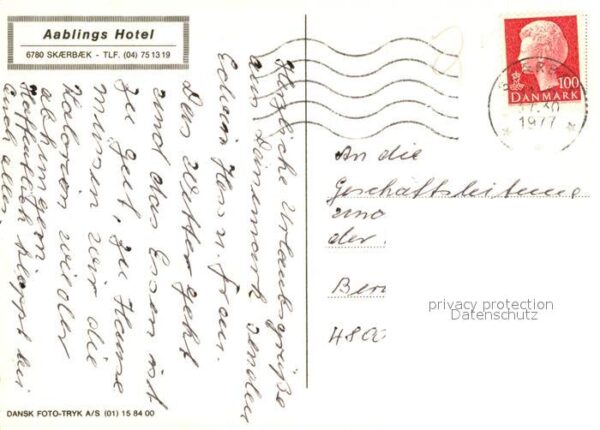 Aablings Hotel
6780 SKÆRBÆK - TLF. (04) 75 13 19
Herzliche Urlaubsgrüße
aus Dänemark senden
Das Wetter geht
und das Essen ist
zu gut, zu Hause
müssen wir die
Kalorien wieder
abhungern.
Hoffentlich klappt bei
Euch alles.
DANSK FOTO-TRYK A/S (01) 15 84 00
100
DANMARK
1977
An die
Geschäftsleitung
und
der
privacy protection
Datenschutz